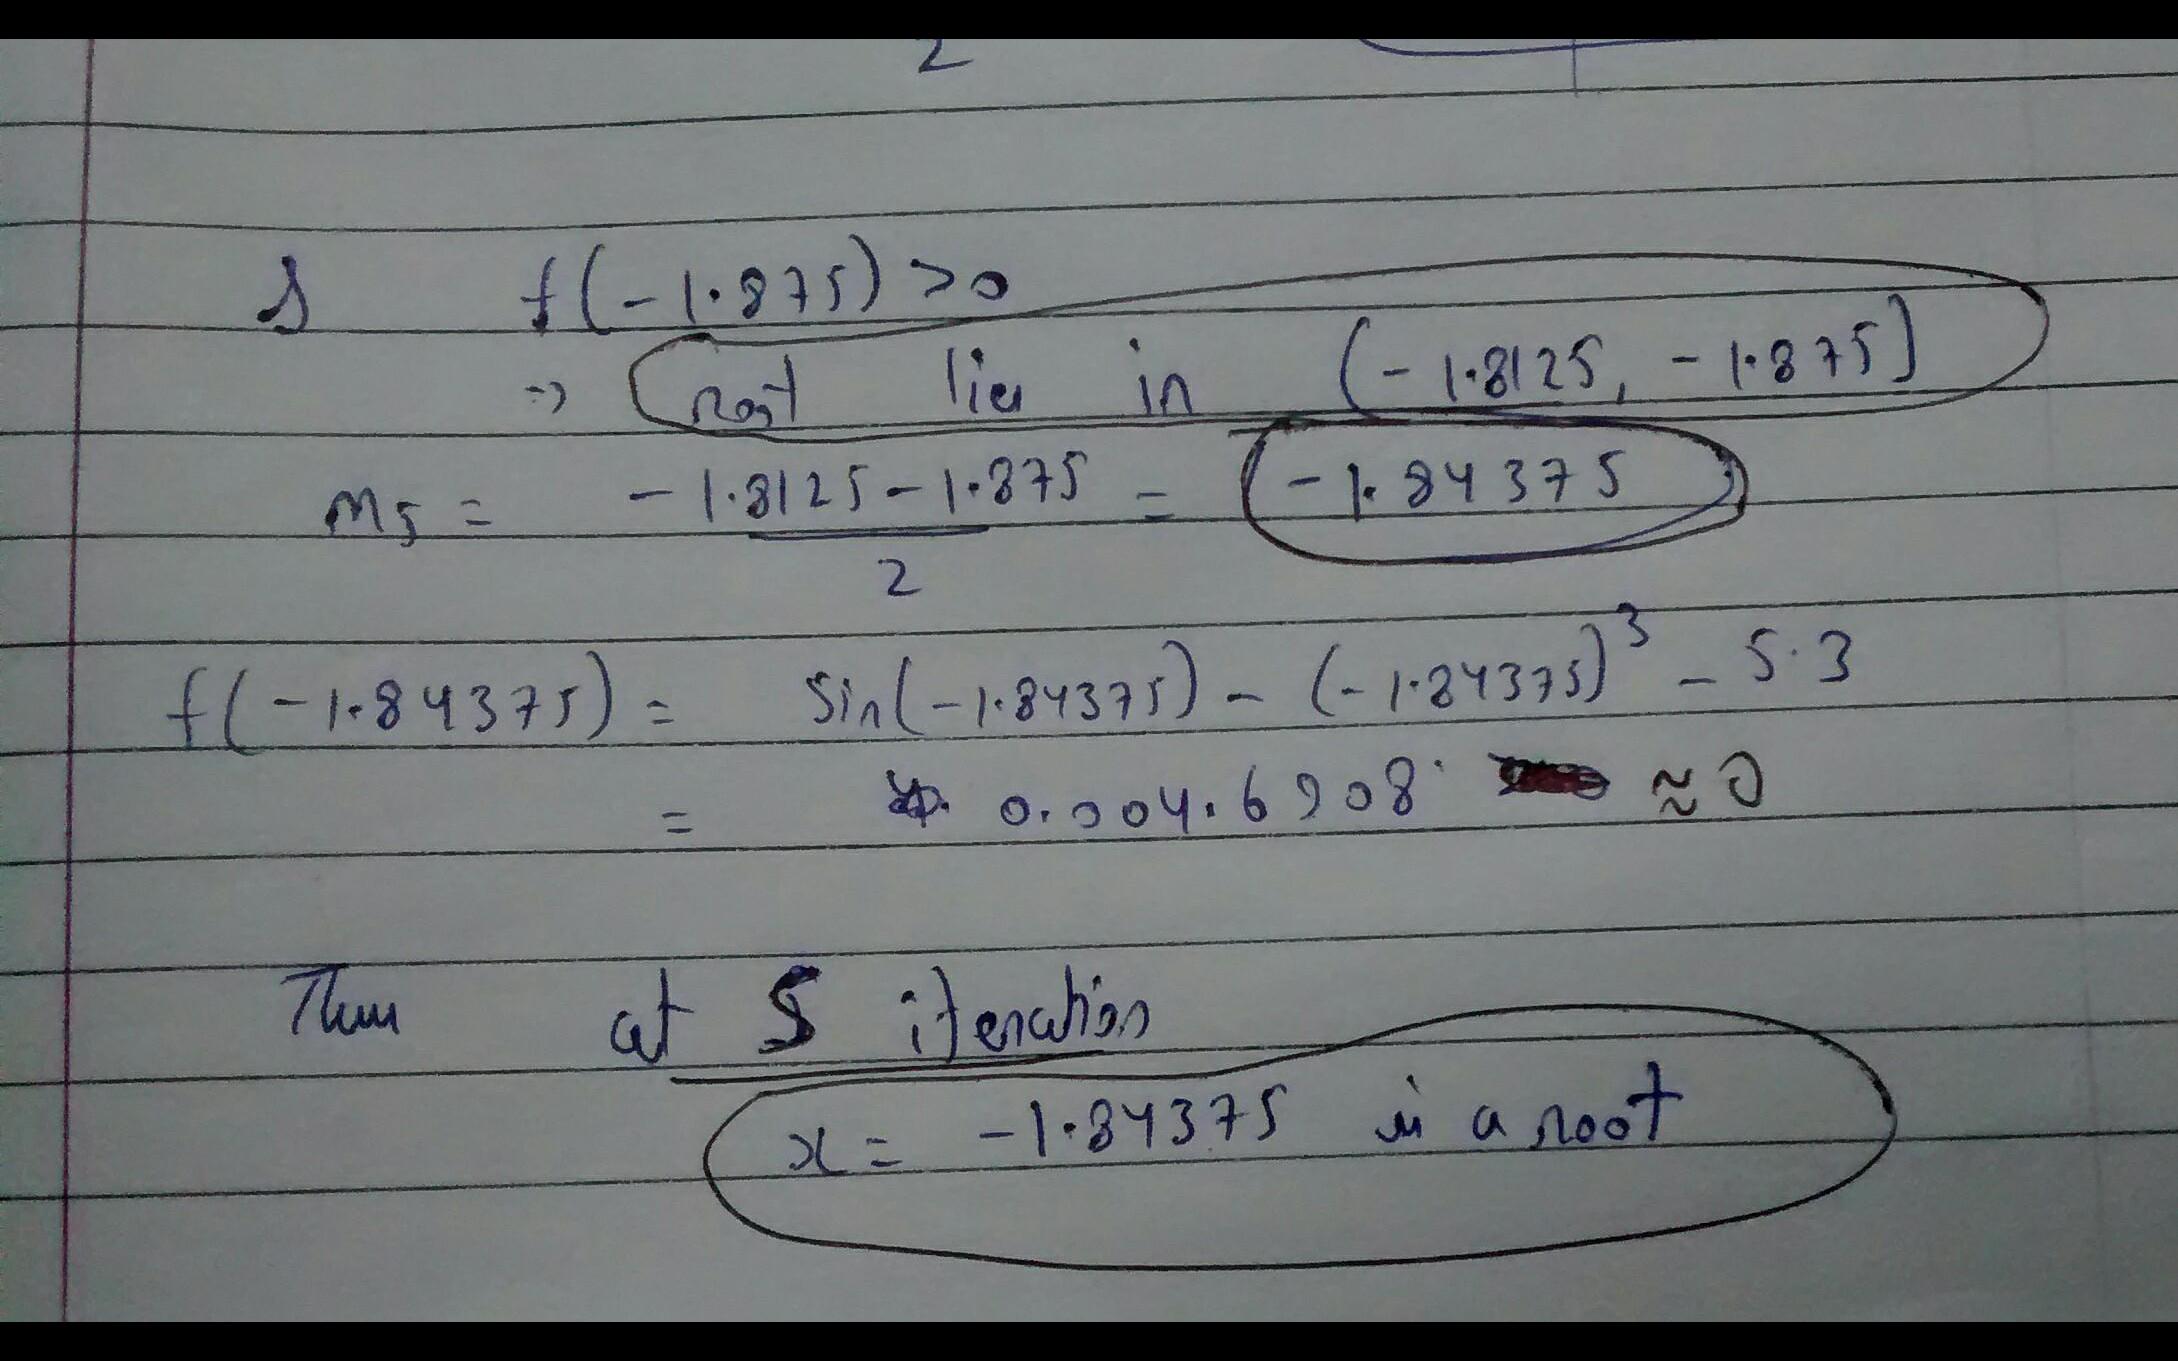 2
5 f(-1.875) >0
=> root lies in (-1.8125, -1.875)
m5 = -1.8125-1.875 = -1.84375
2
f(-1.84375) = Sin(-1.84375) - (-1.84375)^3 - 5.3
= 0.004.6908 ≈ 0
Thus at 5 iteration
x = -1.84375 is a root